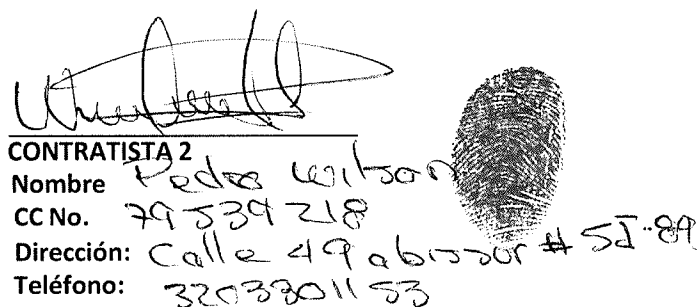 CONTRATISTA 2
Nombre Pedro Wilson
CC No. 79539218
Dirección: Calle 49 a bis sur # 5I-89
Teléfono: 3203301153